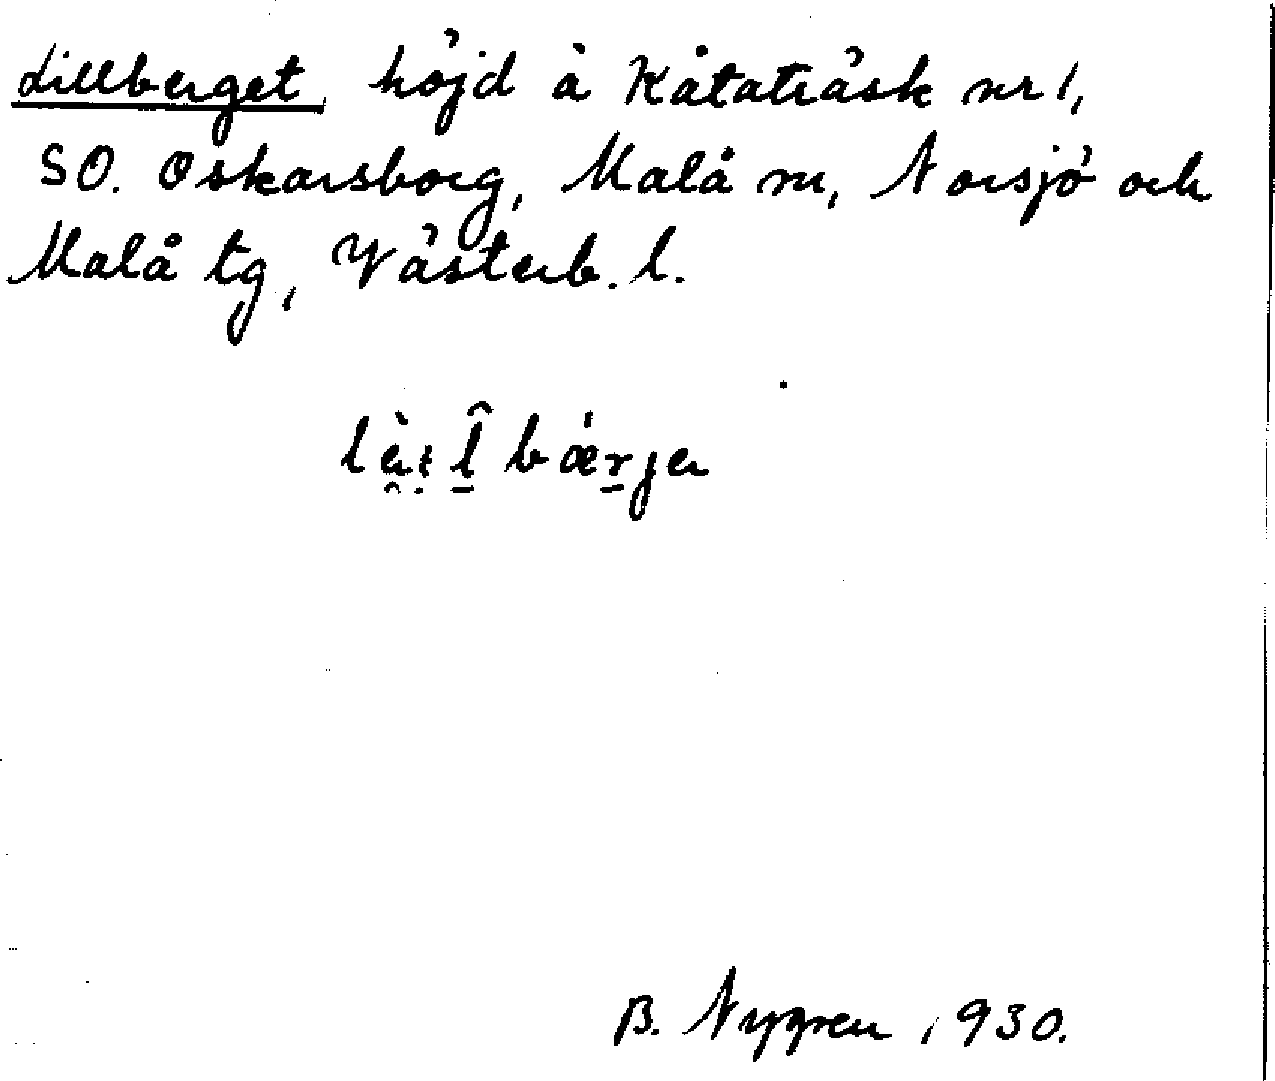 Lillberget, höjd å Kåtaträsk nr 1,
SO. Oskarsborg, Malå sn, Norsjö och
Malå tg, Västerb. l.
B. Nygren 1930.